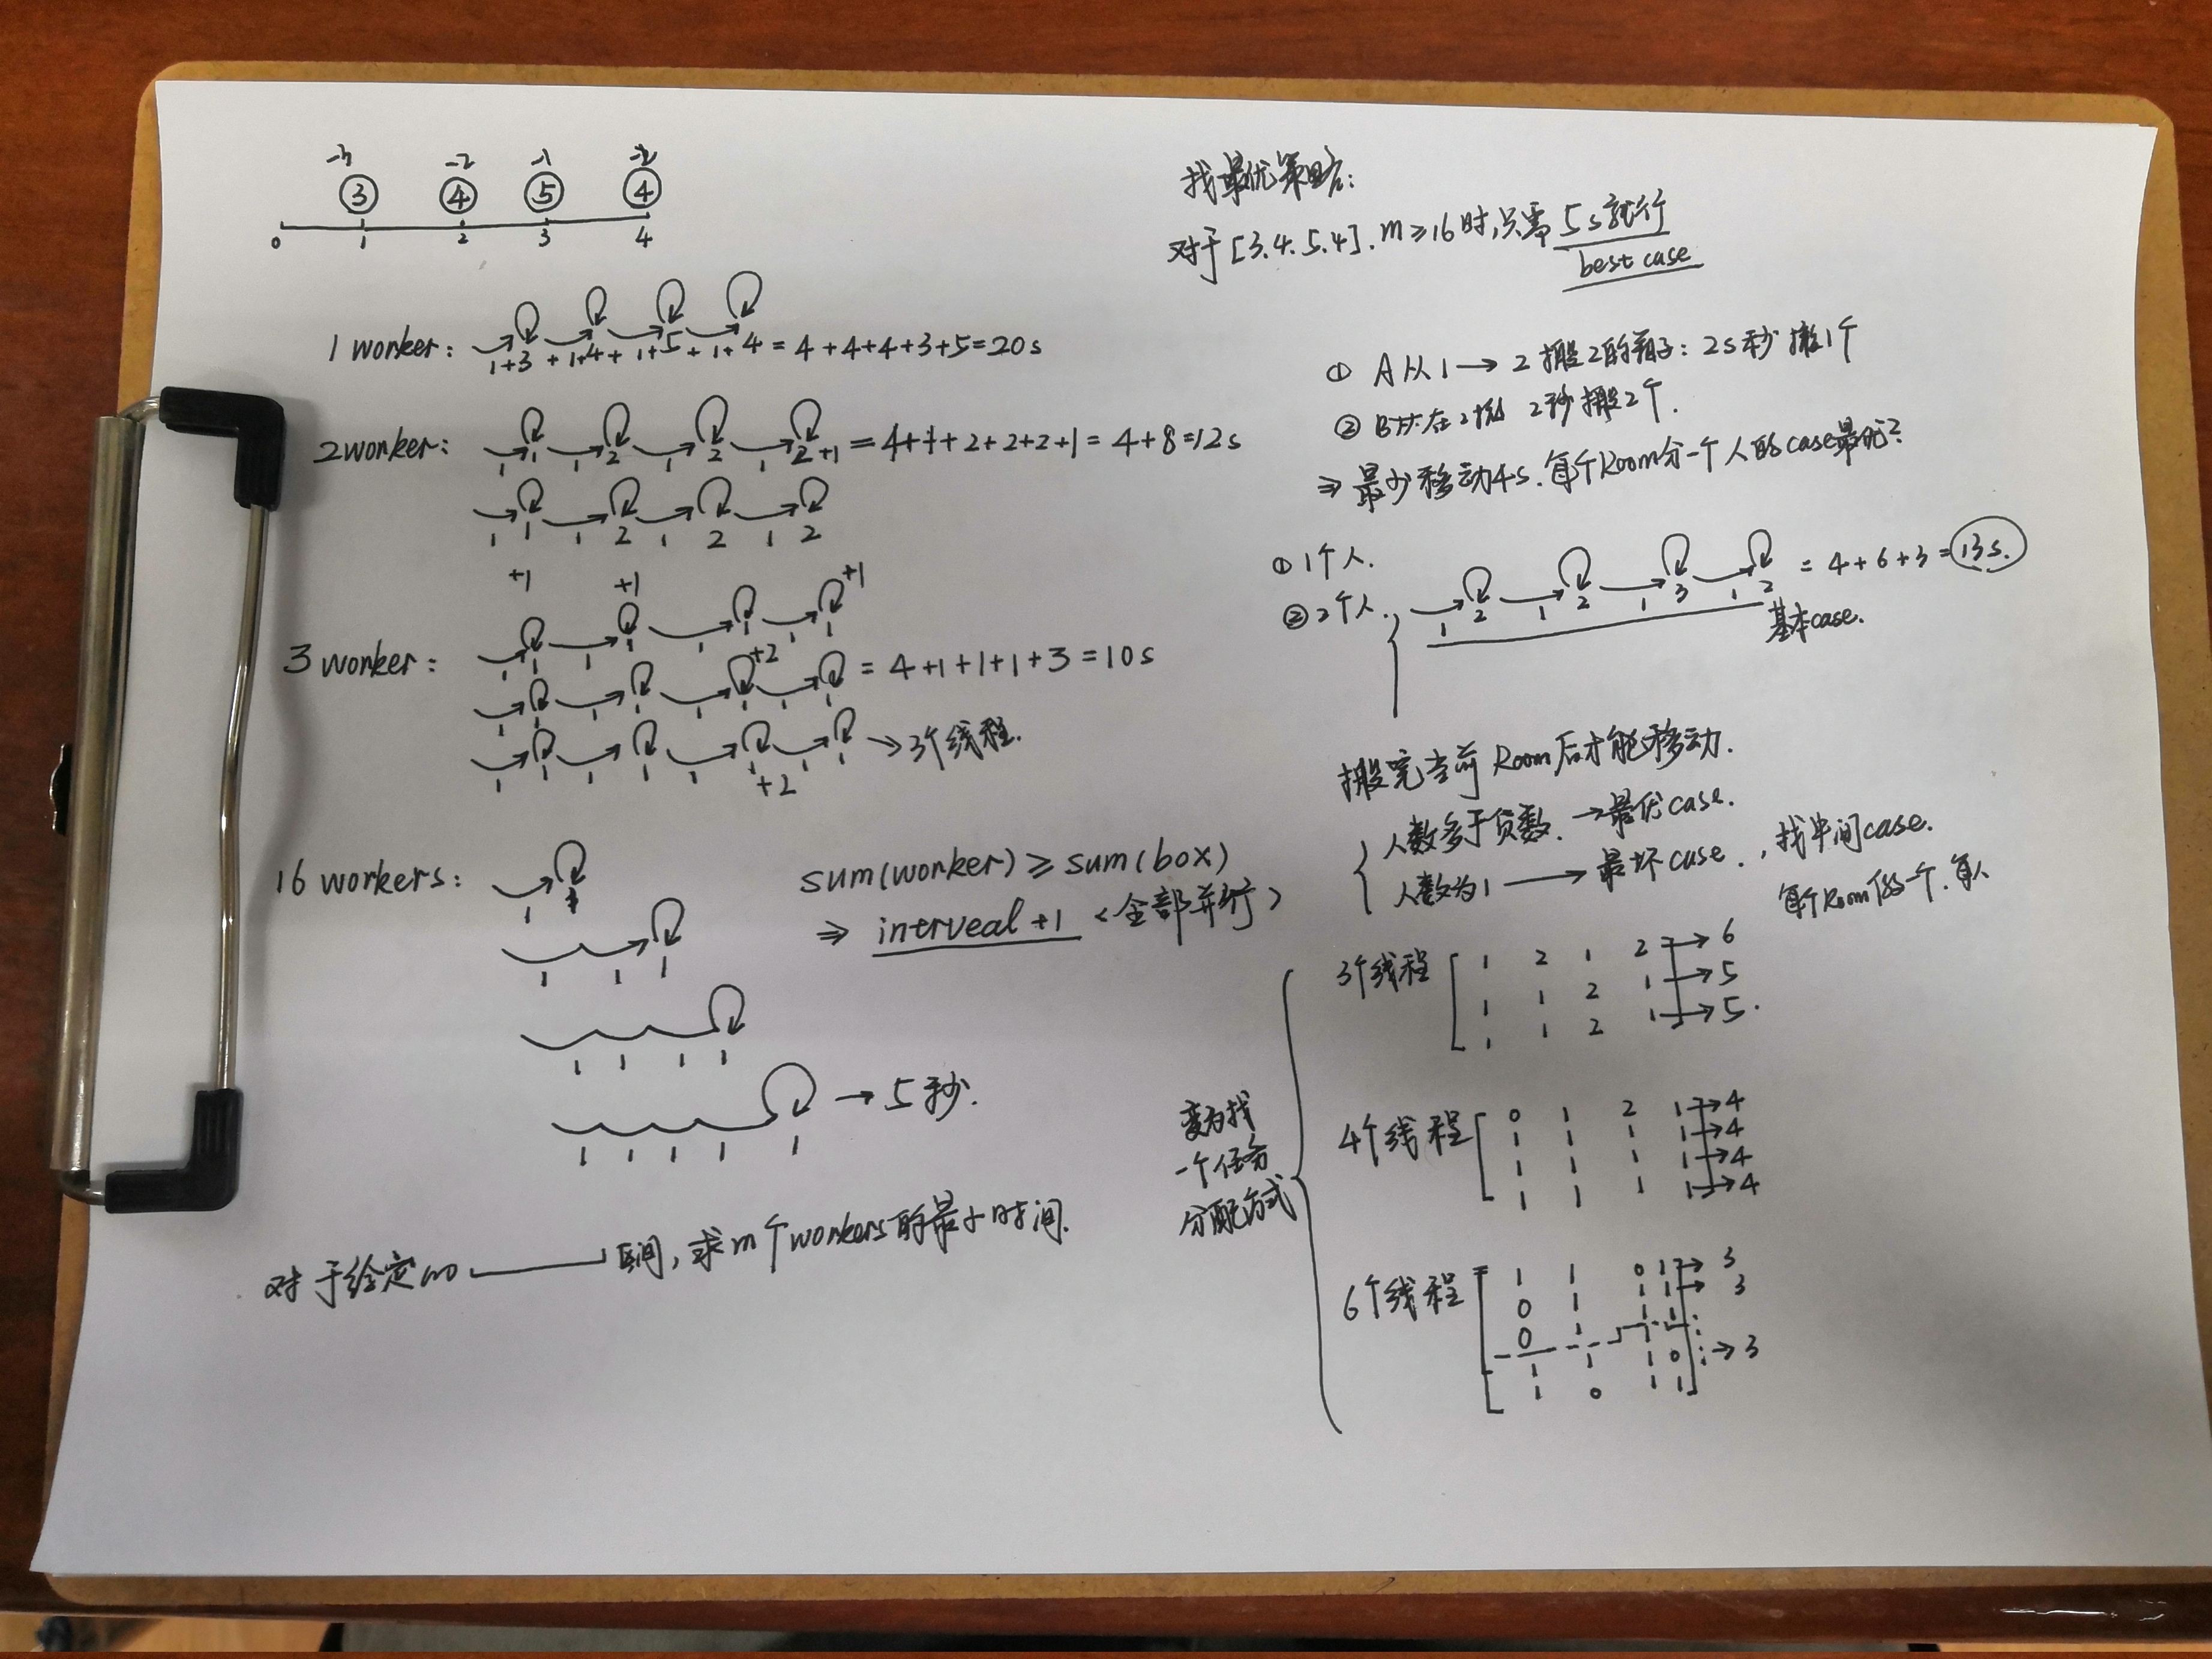 -3 -2 -1 -2
③ ④ ⑤ ④
0 1 2 3 4
1 worker: 1+3 + 1+4 + 1+5 + 1+4 = 4+4+4+3+5=20s
2 worker: 1 1 1 2 1 2 1 2+1 = 4+1+2+2+2+1 = 4+8=12s
1 1 1 2 1 2 1 2
+1 +1 +1
3 worker: 1 1 1 1 1 1
1 1 1 1 1 +2 1 1 = 4+1+1+1+3=10s
1 1 1 1 1 1 1 1 →3个线程.
+2
16 workers: 1 1
1 1 1
1 1 1 1
1 1 1 1 1 →5秒.
sum(worker)≥sum(box)
⇒ intrveal+1 <全部并行>
对于给定的 区间,求m个workers的最少时间.
找最优策略:
对于[3.4.5.4].m≥16时,只需5s就行
best case
① A从1→2搬2的箱子:2s秒搬1个
② B 在2 2秒搬2个.
⇒最少移动4s.每个Room分一个人的case最优?
①1个人.
②2个人. 1 2 1 2 1 3 1 2 = 4+6+3=13s.
基本case.
搬完当前Room后才能移动.
人数多于货数.→最优case.
人数为1→最坏case.,找中间case.
每个Room 一个.
变为找
一个任务
分配方式
3个线程 1 2 1 2→6
1 1 2 1→5
1 1 2 1→5.
4个线程 0 1 2 1→4
1 1 1 1→4
1 1 1 1→4
1 1 1 1→4
6个线程 1 1 0 1→3
0 1 1 1→3
0 1 1 1
1 1 1 0 →3
1 0 1 1